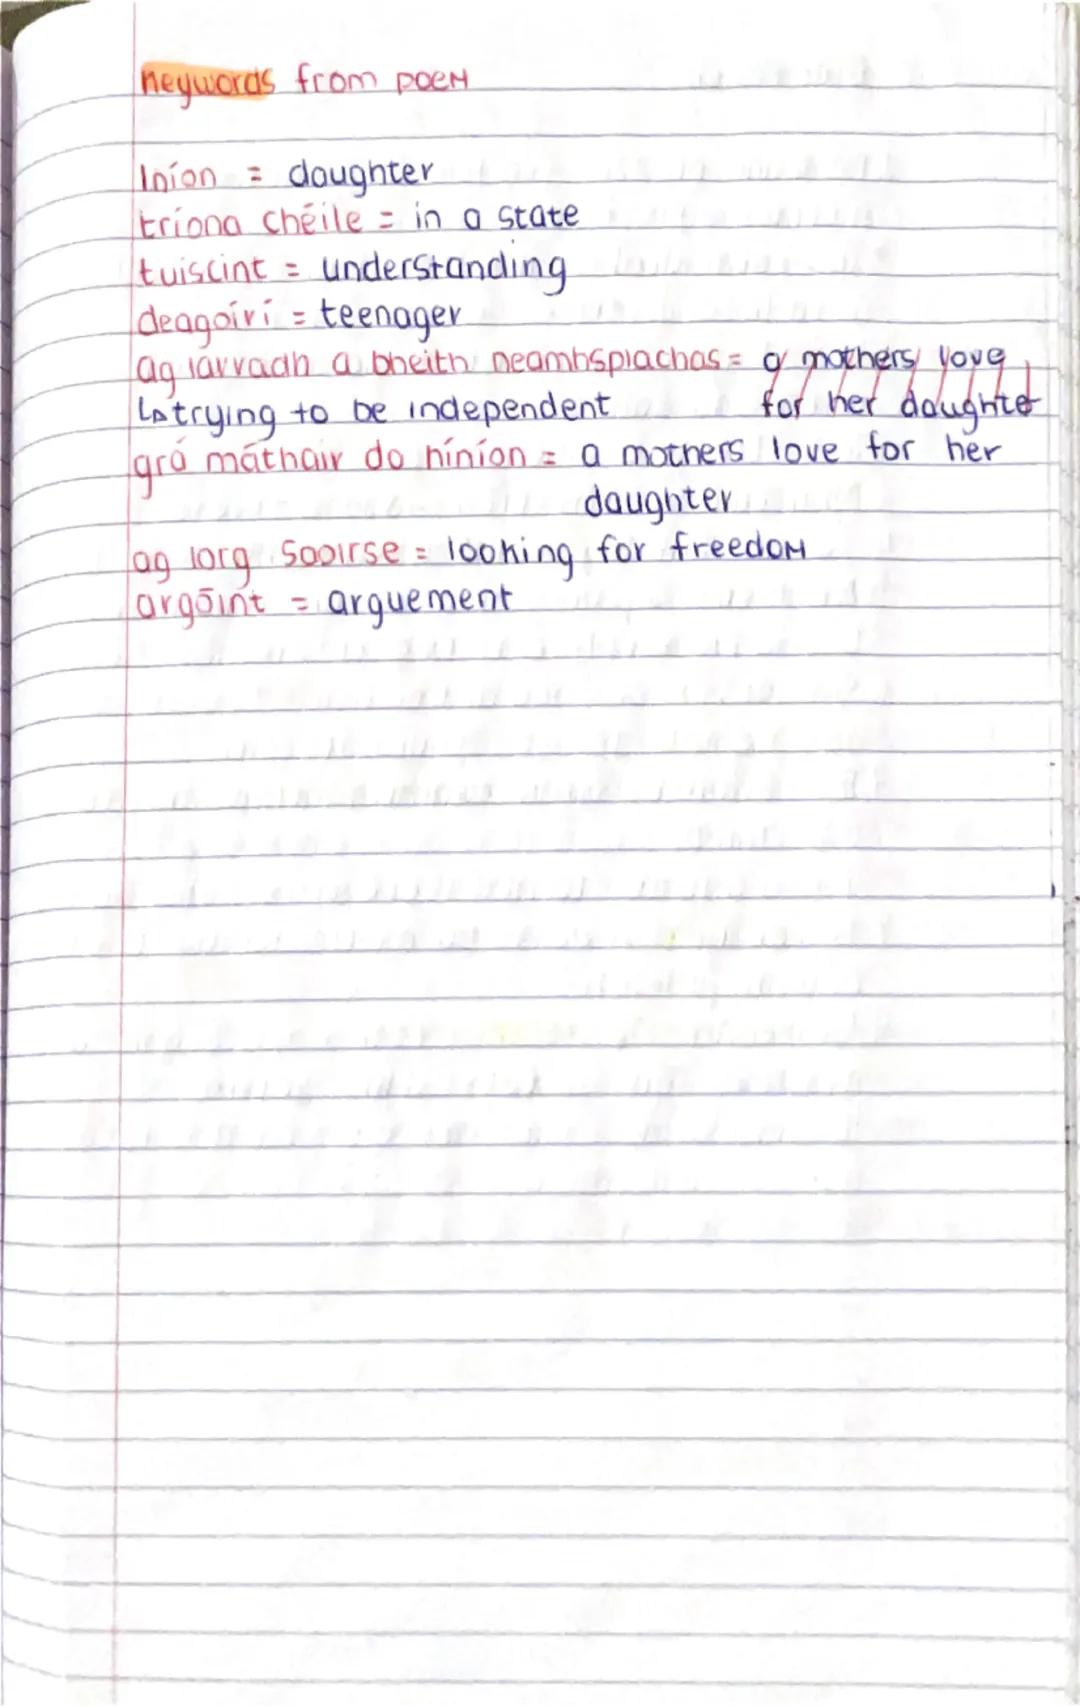 Keywords from poem
Iníon = daughter
tríona chéile = in a state
tuiscint = understanding
deagoírí = teenager
ag iarradh a bheith neamhsplachas = a mothers love
↳ trying to be independent for her daughte
grá máthair do hiníon = a mothers love for her
daughter
ag iorg Saoirse = looking for freedom
argóint = arguement